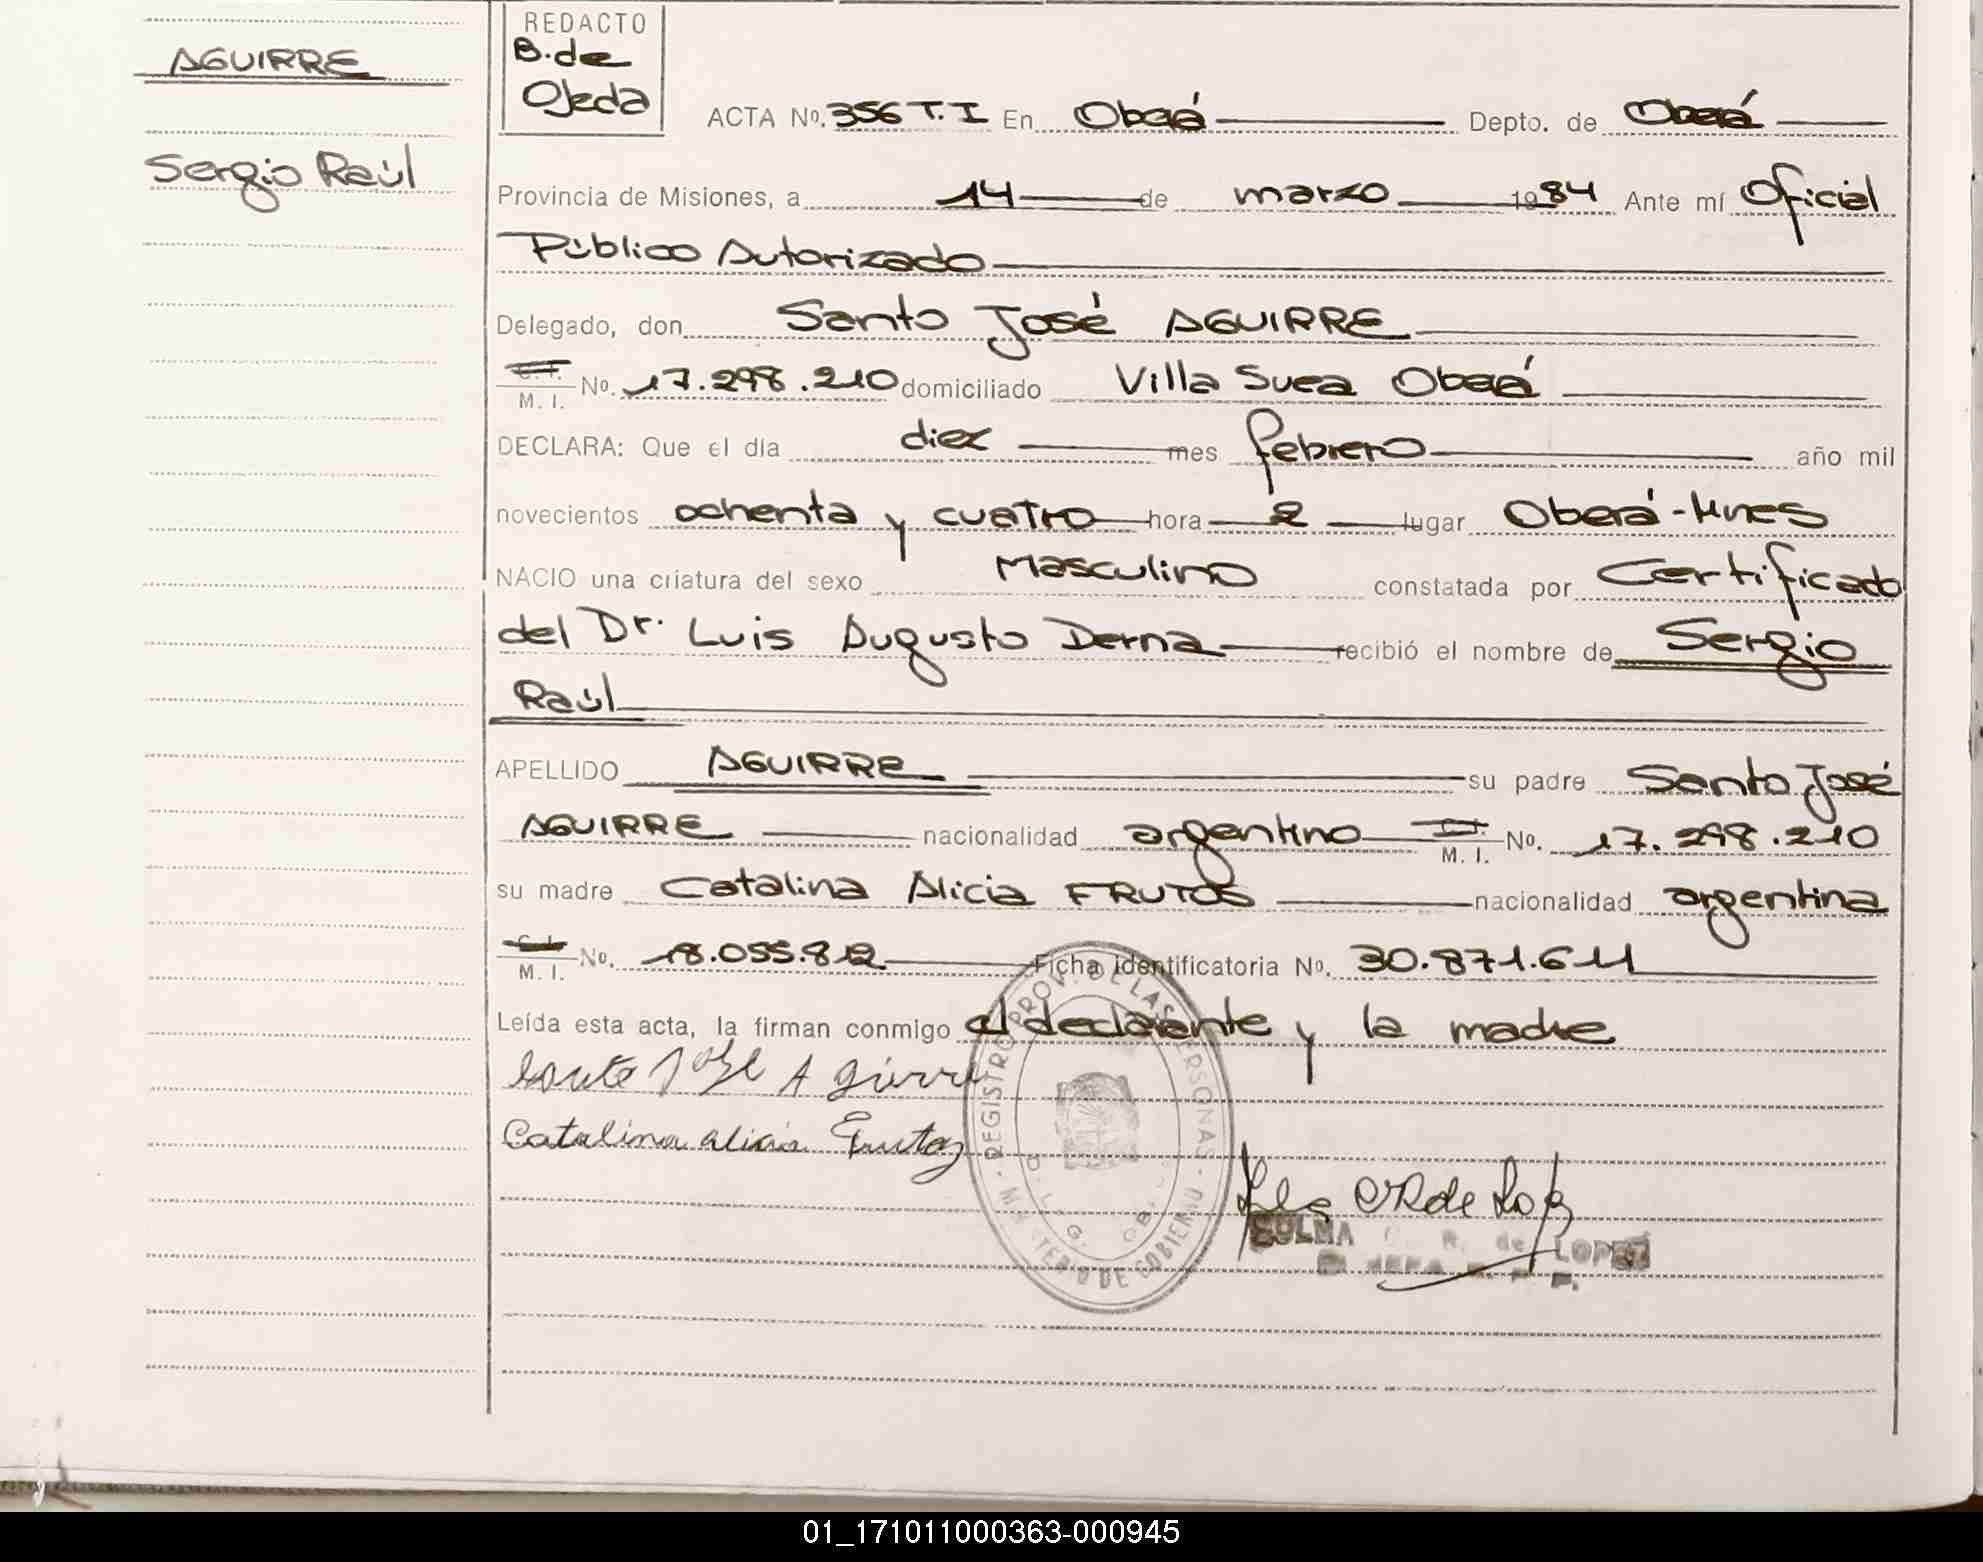 REDACTO
B. de
Ojeda
AGUIRRE
Sergio Raúl
ACTA No. 356 T. I En Oberá Depto. de Oberá
Provincia de Misiones, a 14 de marzo 1984 Ante mí Oficial
Público Autorizado
Delegado, don Santo José AGUIRRE
C. I. M. I. No. 17.298.210 domiciliado Villa Suea Oberá
DECLARA: Que el día diez mes febrero año mil
novecientos ochenta y cuatro hora 2 lugar Oberá-Mnes
NACIO una criatura del sexo Masculino constatada por Certificado
del Dr. Luis Augusto Derna recibió el nombre de Sergio
Raúl
APELLIDO AGUIRRE su padre Santo José
AGUIRRE nacionalidad argentino C. I. M. I. No. 17.298.210
su madre Catalina Alicia FRUTOS nacionalidad argentina
C. I. M. I. No. 18.055.812 Ficha identificatoria No. 30.871.611
Leída esta acta, la firman conmigo el declarante y la madre
Santo José Aguirre
Catalina alicia Frutos
REGISTRO PROV. DE LAS PERSONAS
MINISTERIO DE GOBIERNO
R. de LOPEZ
01_171011000363-000945